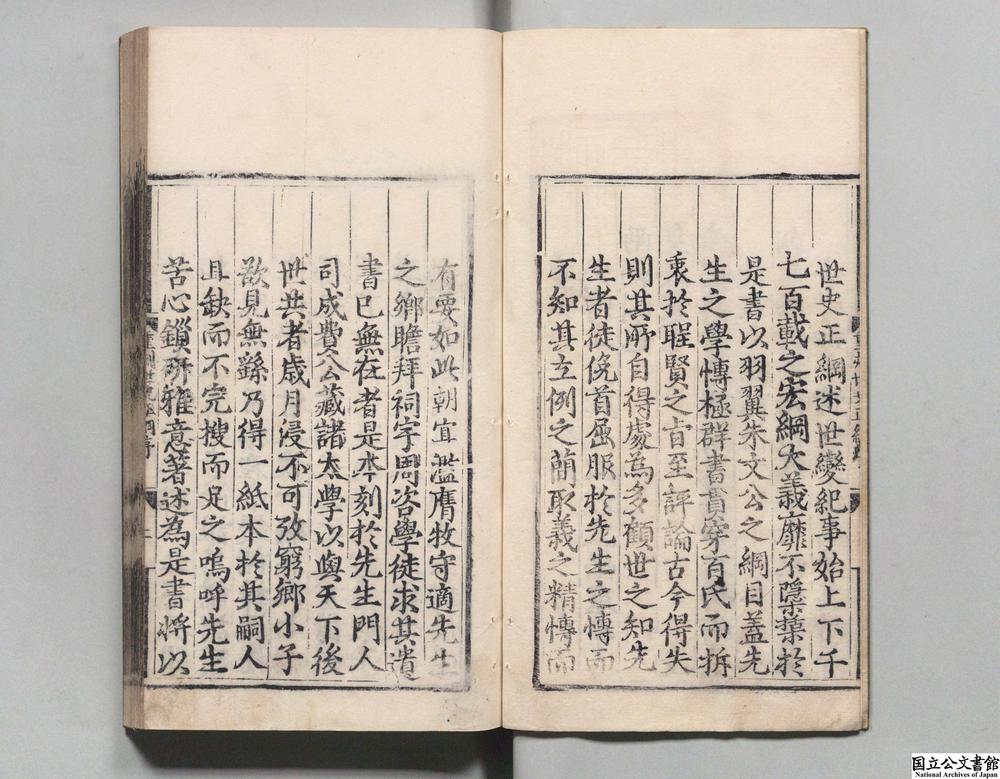 世史正綱述世變紀事始上下千
七百載之宏綱大義靡不隱葉於
是書以羽翼朱文公之綱目蓋先
生之學慱極群書貫穿百氏而折
衷於聖賢之旨至評論古今得失
則其所自得處為多顧世之知先
生者徒俛首屈服於先生之慱而
不知其立例之蕳取義之精慱而
有要如此朝宜濫膺牧守適先生
之鄉瞻拜祠宇周咨學徒求其遺
書已無在者是本刻於先生門人
司成費公藏諸太學以與天下後
世共者歳月浸不可攷窮鄉小子
欲見無繇乃得一紙本於其嗣人
且缺而不完搜而足之嗚呼先生
苦心鎖所雅意著述為是書將以
国立公文書館
National Archives of Japan